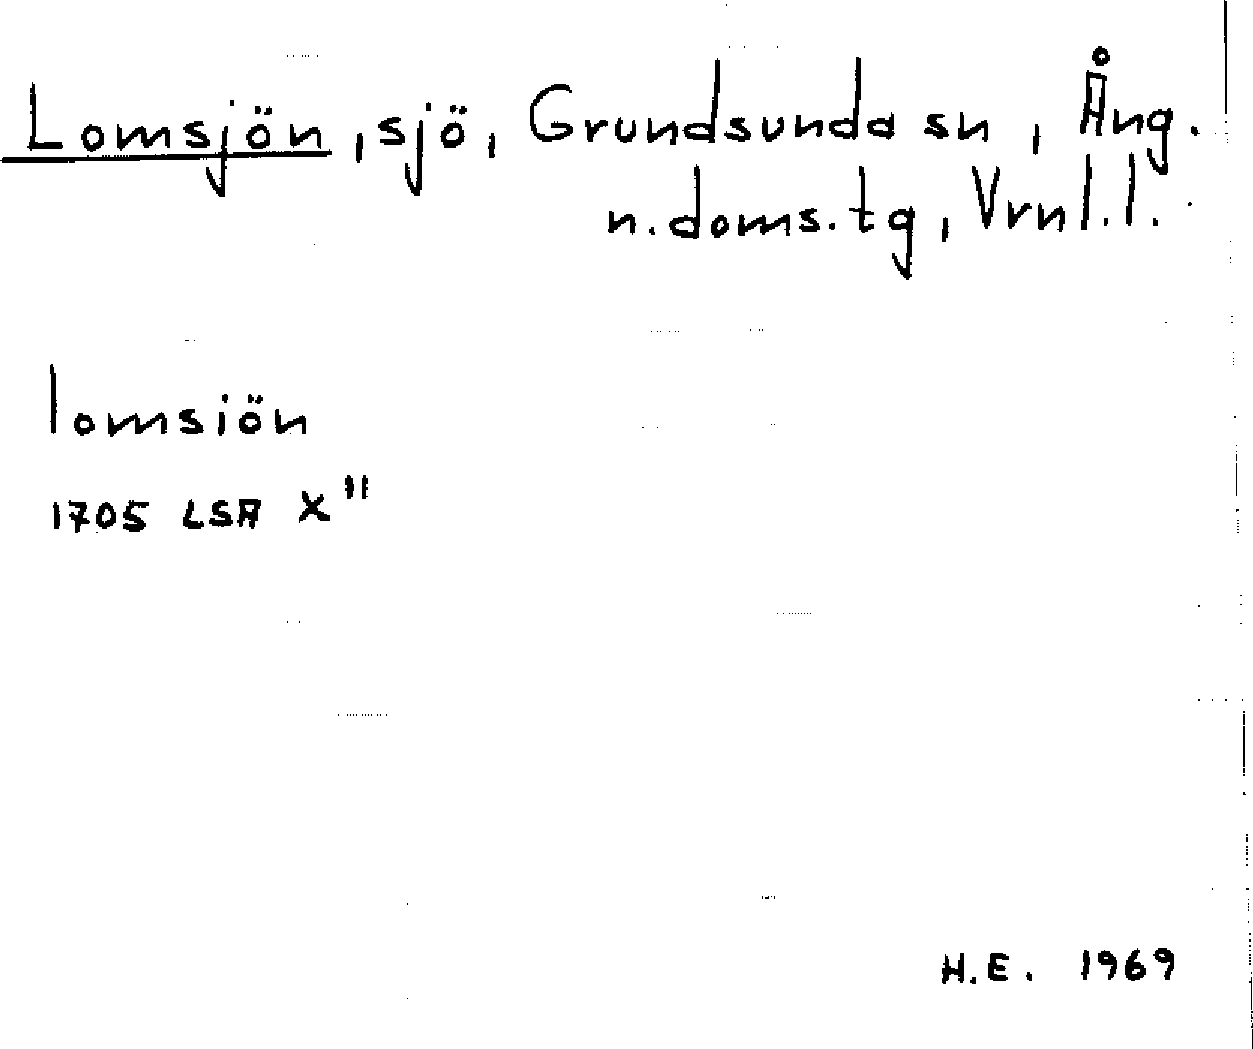 Lomsjön, sjö, Grundsunda sn, Ång.
n. doms. tg, Vrnl. l.
lomsiön
1705 LSA X"
H.E. 1969